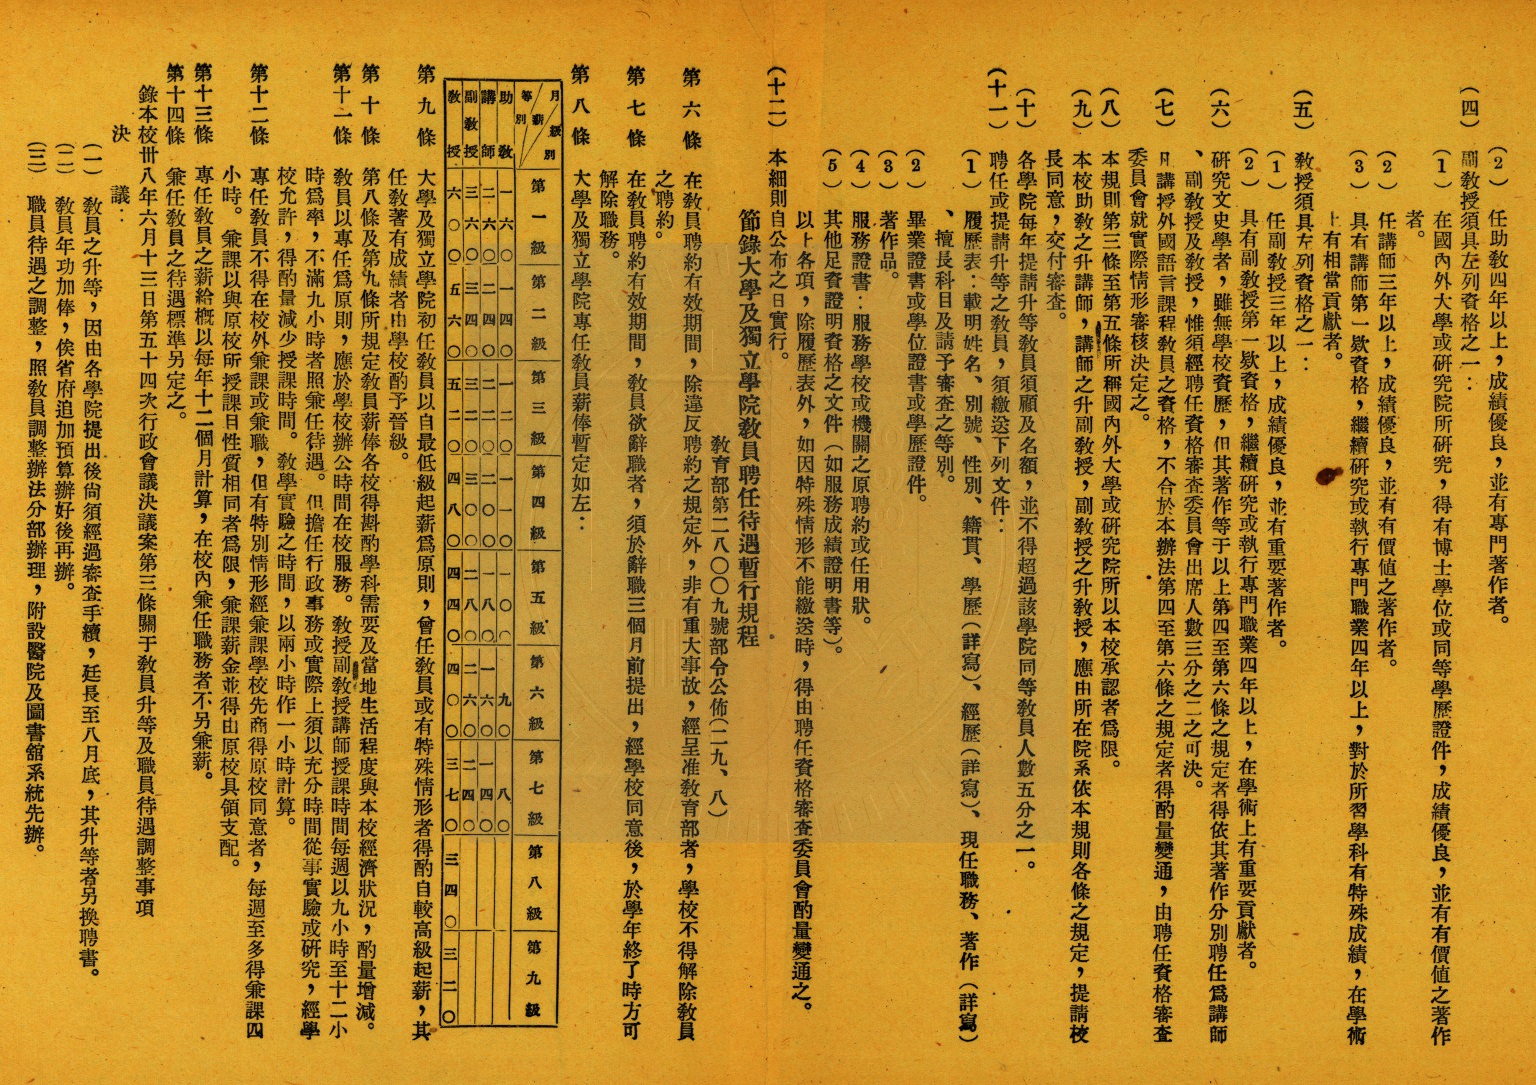 (2) 任助教四年以上，成績優良，並有專門著作者。
(四) 副敎授須具左列資格之一：
(1) 在國內外大學或研究院所研究，得有博士學位或同等學歷證件，成績優良，並有有價値之著作
者。
(2) 任講師三年以上，成績優良，並有有價値之著作者。
(3) 具有講師第一欵資格，繼續研究或執行專門職業四年以上，對於所習學科有特殊成績，在學術
上有相當貢獻者。
(五) 敎授須具左列資格之一：
(1) 任副敎授三年以上，成績優良，並有重要著作者。
(2) 具有副敎授第一欵資格，繼續研究或執行專門職業四年以上，在學術上有重要貢獻者。
(六) 硏究文史學者，雖無學校資歷，但其著作等于以上第四至第六條之規定者得依其著作分別聘任爲講師
、副敎授及敎授，惟須經聘任資格審查委員會出席人數三分之二之可決。
(七) 凡講授外國語言課程敎員之資格，不合於本辦法第四至第六條之規定者得酌量變通，由聘任資格審查
委員會就實際情形審核決定之。
(八) 本規則第三條至第五條所稱國內外大學或硏究院所以本校承認者爲限。
(九) 本校助敎之升講師，講師之升副敎授，副敎授之升敎授，應由所在院系依本規則各條之規定，提請校
長同意，交付審查。
(十) 各學院每年提請升等敎員須顧及名額，並不得超過該學院同等敎員人數五分之一。
(十一) 聘任或提請升等之敎員，須繳送下列文件：
(1) 履歷表：載明姓名、別號、性別、籍貫、學歷(詳寫)、經歷(詳寫)、現任職務、著作(詳寫)
、擅長科目及請予審查之等別。
(2) 畢業證書或學位證書或學歷證件。
(3) 著作品。
(4) 服務證書：服務學校或機關之原聘約或任用狀。
(5) 其他足資證明資格之文件(如服務成績證明書等)。
以上各項，除履歷表外，如因特殊情形不能繳送時，得由聘任資格審查委員會酌量變通之。
(十二) 本細則自公布之日實行。
節錄大學及獨立學院敎員聘任待遇暫行規程
敎育部第二八〇〇九號部令公佈(二九、八)
第六條 在敎員聘約有效期間，除違反聘約之規定外，非有重大事故，經呈准敎育部者，學校不得解除敎員
之聘約。
第七條 在敎員聘約有效期間，敎員欲辭職者，須於辭職三個月前提出，經學校同意後，於學年終了時方可
解除職務。
第八條 大學及獨立學院專任敎員薪俸暫定如左：
月薪 級別 等別 第一級 第二級 第三級 第四級 第五級 第六級 第七級 第八級 第九級
助敎 一六〇 一四〇 一二〇 一一〇 一〇〇 九〇 八〇
講師 二六〇 二四〇 二二〇 二〇〇 一八〇 一六〇 一四〇
副敎授 三六〇 三四〇 三二〇 三〇〇 二八〇 二六〇 二四〇
敎授 六〇〇 五六〇 五二〇 四八〇 四四〇 四〇〇 三七〇 三四〇 三二〇
第九條 大學及獨立學院初任敎員以自最低級起薪爲原則，曾任敎員或有特殊情形者得酌自較高級起薪，其
任敎著有成績者由學校酌予晉級。
第十條 第八條及第九條所規定敎員薪俸各校得斟酌學科需要及當地生活程度與本校經濟狀況，酌量增減。
第十一條 敎員以專任爲原則，應於學校辦公時間在校服務。敎授副敎授講師授課時間每週以九小時至十二小
時爲率，不滿九小時者照兼任待遇。但擔任行政事務或實際上須以充分時間從事實驗或硏究，經學
校允許，得酌量減少授課時間。敎學實驗之時間，以兩小時作一小時計算。
第十二條 專任敎員不得在校外兼課或兼職，但有特別情形經兼課學校先商得原校同意者，每週至多得兼課四
小時。兼課以與原校所授課目性質相同者爲限，兼課薪金並得由原校具領支配。
第十三條 專任敎員之薪給槪以每年十二個月計算，在校內兼任職務者不另兼薪。
第十四條 兼任敎員之待遇標準另定之。
錄本校卅八年六月十三日第五十四次行政會議決議案第三條關于敎員升等及職員待遇調整事項
決議：
(一) 敎員之升等，因由各學院提出後尙須經過審查手續，廷長至八月底，其升等者另換聘書。
(二) 敎員年功加俸，俟省府追加預算辦好後再辦。
(三) 職員待遇之調整，照敎員調整辦法分部辦理，附設醫院及圖書舘系統先辦。